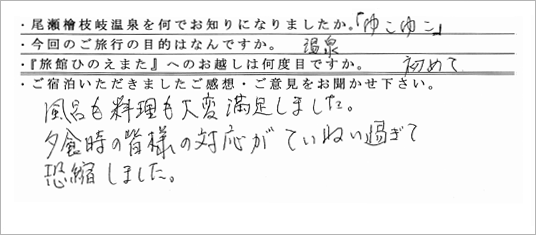 ・尾瀬檜枝岐温泉を何でお知りになりましたか。「ゆこゆこ」
・今回のご旅行の目的はなんですか。 温泉
・『旅館ひのえまた』へのお越しは何度目ですか。 初めて
・ご宿泊いただきましたご感想・ご意見をお聞かせ下さい。
風呂も料理も大変満足しました。
夕食時の皆様の対応がていねい過ぎて
恐縮しました。